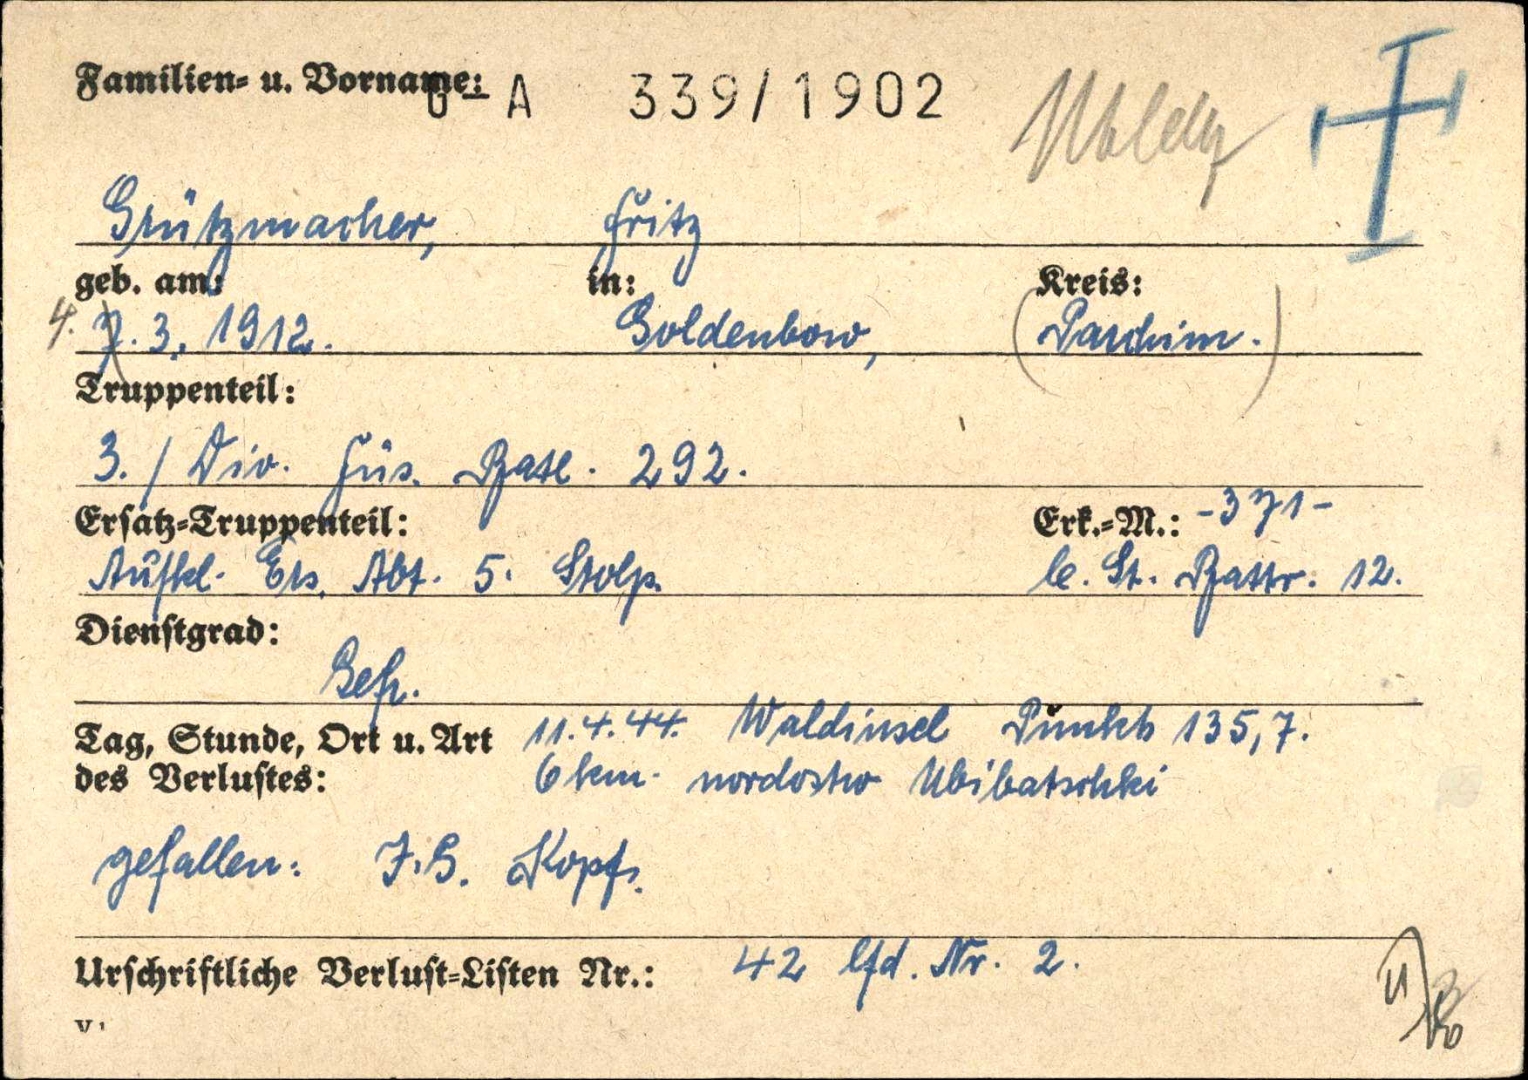 Familien- u. Vorname:
G-A 339/1902
Grützmacher, Fritz
geb. am: in: Kreis:
4. 7.3.1912. Goldenbow, (Parchim.)
Truppenteil:
3./Div. Füs. Batl. 292.
Ersatz-Truppenteil: Erk.-M.: -371-
Aufkl. Ers. Abt. 5. Stolp. le. St. Battr. 12.
Dienstgrad:
Gefr.
Tag, Stunde, Ort u. Art 11.4.44. Waldinsel Punkt 135,7.
des Verlustes: 6 km. nordostw Ubibatschki
gefallen. J.G. Kopf.
Urschriftliche Verlust-Listen Nr.: 42 lfd. Nr. 2.
V 1